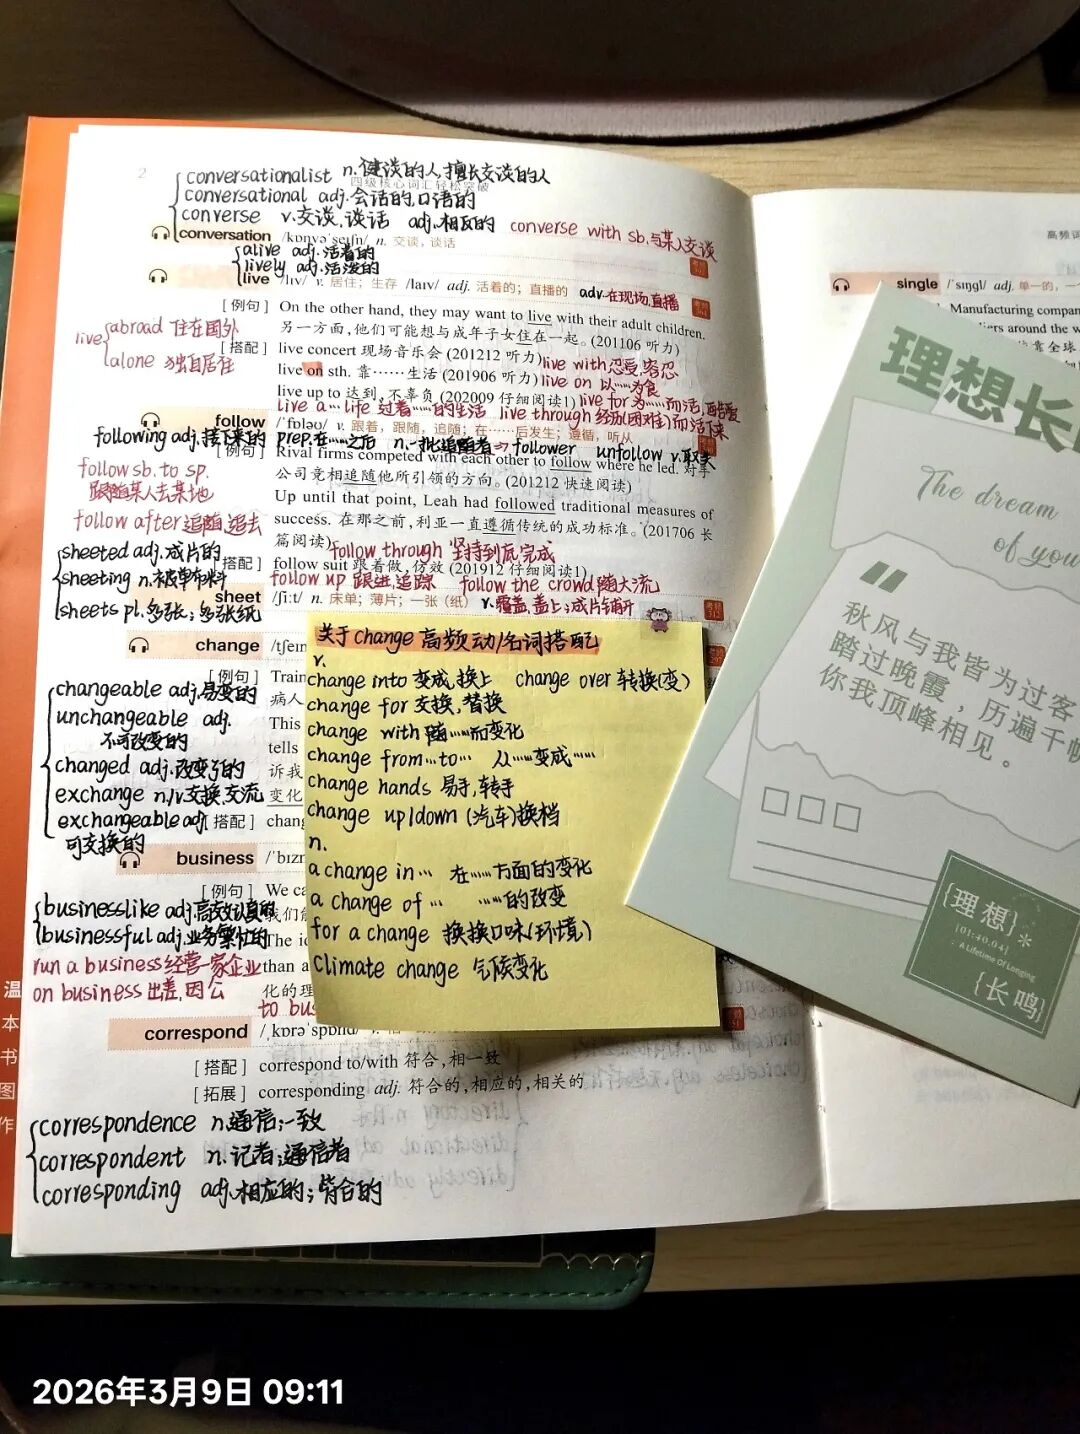 2
conversationalist n.健谈的人,擅长交谈的人
四级核心词汇轻松突破
conversational adj.会话的,口语的
converse v.交谈,谈话 adj.相反的 converse with sb.与某人交谈
conversation n. 交谈，谈话
alive adj.活着的
lively adj.活泼的
live /lɪv/ v. 居住；生存 /laɪv/ adj. 活着的；直播的 adv.在现场,直播
[例句] On the other hand, they may want to live with their adult children.
另一方面,他们可能想与成年子女住在一起。(201106 听力)
live abroad 住在国外
alone 独自居住
[搭配] live concert 现场音乐会 (201212 听力) live with 忍受,容忍
live on sth. 靠……生活 (201906 听力) live on 以……为食
live up to 达到, 不辜负 (202009 仔细阅读1) live for 为……而活,酷爱
live a … life 过着……的生活 live through 经历(困难)而活下来
follow /ˈfɒləʊ/ v. 跟着，跟随，追随；在……后发生；遵循，听从
following adj.接下来的 prep.在……之后 n.一批追随者⇒follower unfollow v.取关
[例句] Rival firms competed with each other to follow where he led. 对手
公司竞相追随他所引领的方向。(201212 快速阅读)
Up until that point, Leah had followed traditional measures of
success. 在那之前, 利亚一直遵循传统的成功标准。(201706 长
篇阅读) follow through 坚持到底,完成
follow sb. to sp.
跟随某人去某地
follow after 追随,追去
[搭配] follow suit 跟着做, 仿效 (201912 仔细阅读1)
follow up 跟进,追踪 follow the crowd 随大流
sheeted adj.成片的
sheeting n.被单布料
sheets pl.多张；多张纸
sheet /ʃiːt/ n. 床单；薄片；一张（纸） v.覆盖,盖上；成片铺开
change
[例句] Train
病人
This
tells
诉我
变化
changeable adj.易变的
unchangeable adj.
不可改变的
changed adj.改变了的
exchange n./v.交换,交流
exchangeable adj.
可交换的
[搭配] chang
business
[例句] We ca
我们
The ic
than a
化的理
businesslike adj.高效认真的
businessful adj.业务繁忙的
run a business 经营一家企业
on business 出差,因公
to bus
关于change 高频动/名词搭配
v.
change into 变成,换上 change over 转换(变)
change for 交换,替换
change with 随……而变化
change from…to… 从……变成……
change hands 易手,转手
change up/down (汽车)换档
n.
a change in… 在……方面的变化
a change of … ……的改变
for a change 换换口味(环境)
Climate change 气候变化
correspond
[搭配] correspond to/with 符合, 相一致
[拓展] corresponding adj. 符合的, 相应的, 相关的
correspondence n.通信；一致
correspondent n.记者；通信者
corresponding adj.相应的；符合的
温
本
书
图
作
高频词
single /ˈsɪŋɡl/ adj. 单一的，一
Manufacturing compan
liers around the w
靠全球
理想长
The dream
of you
秋风与我皆为过客
踏过晚霞，历遍千帆
你我顶峰相见。
{理想}*
[01:40.04]
A Lifetime Of Longing
{长鸣}
2026年3月9日 09:11